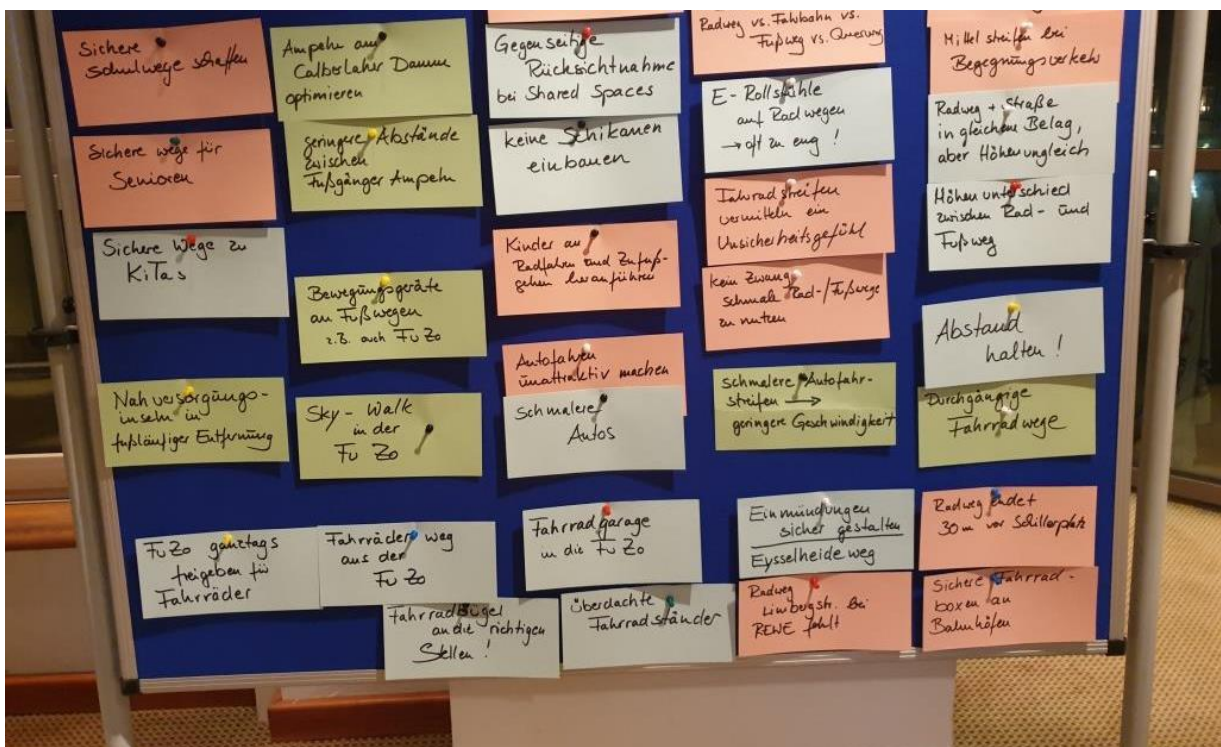 Sichere
Schulwege schaffen
Sichere Wege für
Senioren
Sichere Wege zu
KiTas
Nahversorgungs-
inseln in
fußläufiger Entfernung
FuZo ganztags
freigeben für
Fahrräder
Ampeln am
Calberlaher Damm
optimieren
geringere Abstände
zwischen
Fußgänger Ampeln
Bewegungsgeräte
an Fußwegen
z.B. auch FuZo
Sky-Walk
in der
FuZo
Fahrräder weg
aus der
FuZo
Fahrradbügel
an die richtigen
Stellen!
Gegenseitige
Rücksichtnahme
bei Shared Spaces
keine Schikanen
einbauen
Kinder an
Radfahren und Zufuß-
gehen heranführen
Autofahren
unattraktiv machen
Schmalere
Autos
Fahrradgarage
in die FuZo
überdachte
Fahrradständer
Radweg vs. Fahrbahn vs.
Fußweg vs. Querung
E-Rollstühle
auf Radwegen
→ oft zu eng!
Fahrradstreifen
vermitteln ein
Unsicherheitsgefühl
Kein Zwang
schmale Rad-/Fußwege
zu nutzen
Schmalere Autofahr-
streifen →
geringere Geschwindigkeit
Einmündungen
sicher gestalten
Eysselheideweg
Radweg
Limbergstr. bei
REWE fehlt
Mittelstreifen bei
Begegnungsverkehr
Radweg + Straße
in gleichem Belag,
aber Höhenungleich
Höhenunterschied
zwischen Rad- und
Fußweg
Abstand
halten!
Durchgängige
Fahrradwege
Radweg endet
30m vor Schillerplatz
Sichere Fahrrad-
boxen an
Bahnhöfen